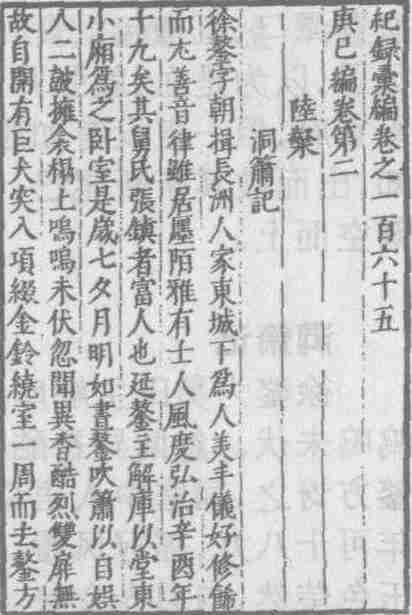 紀録彙編卷之一百六十五
庚巳編卷第二
陸粲
洞簫記
徐鏊字朝揖長洲人家東城下爲人美丰儀好修飾
而尤善音律雖居廛陌雅有士人風度弘治辛酉年
十九矣其舅氏張鎮者富人也延鏊主解庫以堂東
小廂爲之卧室是歲七夕月明如晝鏊吹簫以自娱
入二皷擁衾榻上嗚嗚未伏忽聞異香酷烈雙扉無
故自開有巨犬突入項綴金鈴繞室一周而去鏊方